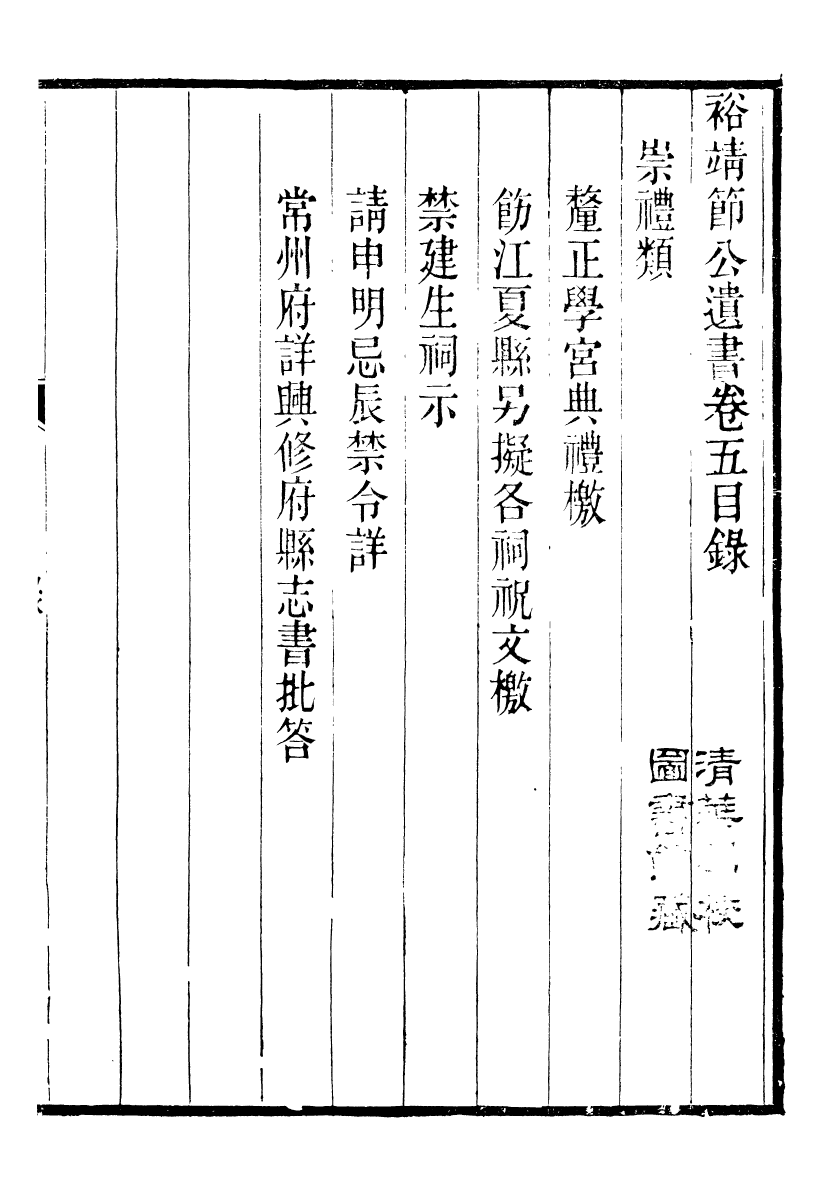 裕靖節公遺書卷五目錄
崇禮類
釐正學宮典禮檄
飭江夏縣另擬各祠祝文檄
禁建生祠示
請申明忌辰禁令詳
常州府詳興修府縣志書批答
清華學校
圖書館藏